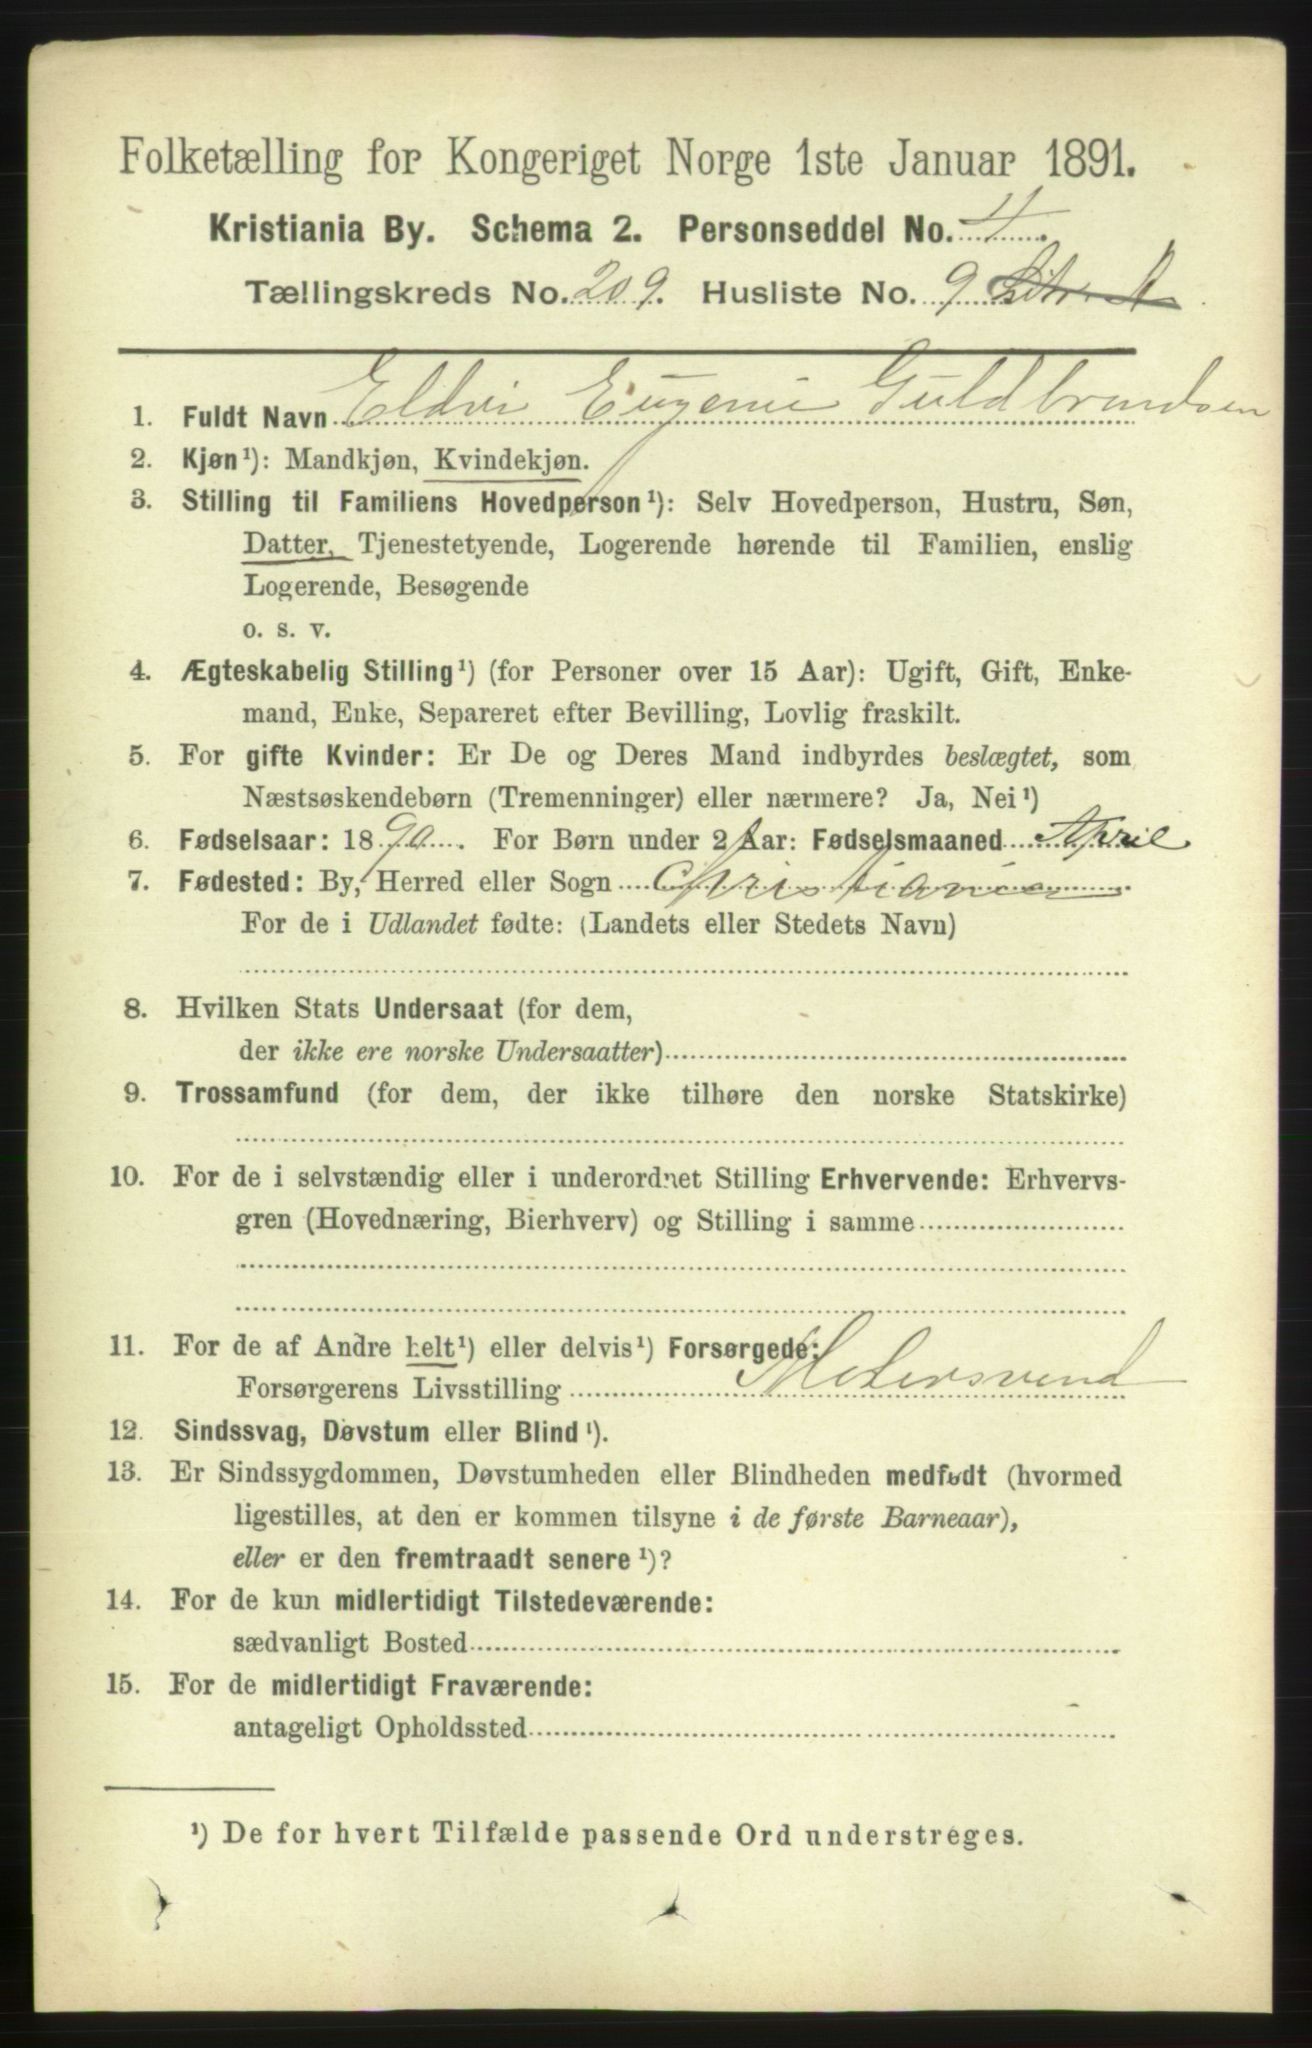 Folketælling for Kongeriget Norge 1ste Januar 1891.
Kristiania By. Schema 2. Personseddel No. 4.
Tællingskreds No. 209. Husliste No. 9 Litr. A
1. Fuldt Navn Eldvi Eugenie Guldbrandsen
2. Kjøn¹): Mandkjøn, Kvindekjøn.
3. Stilling til Familiens Hovedperson¹): Selv Hovedperson, Hustru, Søn,
Datter, Tjenestetyende, Logerende hørende til Familien, enslig
Logerende, Besøgende
o. s. v.
4. Ægteskabelig Stilling¹) (for Personer over 15 Aar): Ugift, Gift, Enke-
mand, Enke, Separeret efter Bevilling, Lovlig fraskilt.
5. For gifte Kvinder: Er De og Deres Mand indbyrdes beslægtet, som
Næstsøskendebørn (Tremenninger) eller nærmere? Ja, Nei¹)
6. Fødselsaar: 1890. For Børn under 2 Aar: Fødselsmaaned April
7. Fødested: By, Herred eller Sogn Christiania
For de i Udlandet fødte: (Landets eller Stedets Navn)
8. Hvilken Stats Undersaat (for dem,
der ikke ere norske Undersaatter)
9. Trossamfund (for dem, der ikke tilhøre den norske Statskirke)
10. For de i selvstændig eller i underordnet Stilling Erhvervende: Erhvervs-
gren (Hovednæring, Bierhverv) og Stilling i samme
11. For de af Andre helt¹) eller delvis¹) Forsørgede:
Forsørgerens Livsstilling Malersvend
12. Sindssvag, Døvstum eller Blind¹).
13. Er Sindssygdommen, Døvstumheden eller Blindheden medfødt (hvormed
ligestilles, at den er kommen tilsyne i de første Barneaar),
eller er den fremtraadt senere¹)?
14. For de kun midlertidigt Tilstedeværende:
sædvanligt Bosted
15. For de midlertidigt Fraværende:
antageligt Opholdssted
¹) De for hvert Tilfælde passende Ord understreges.